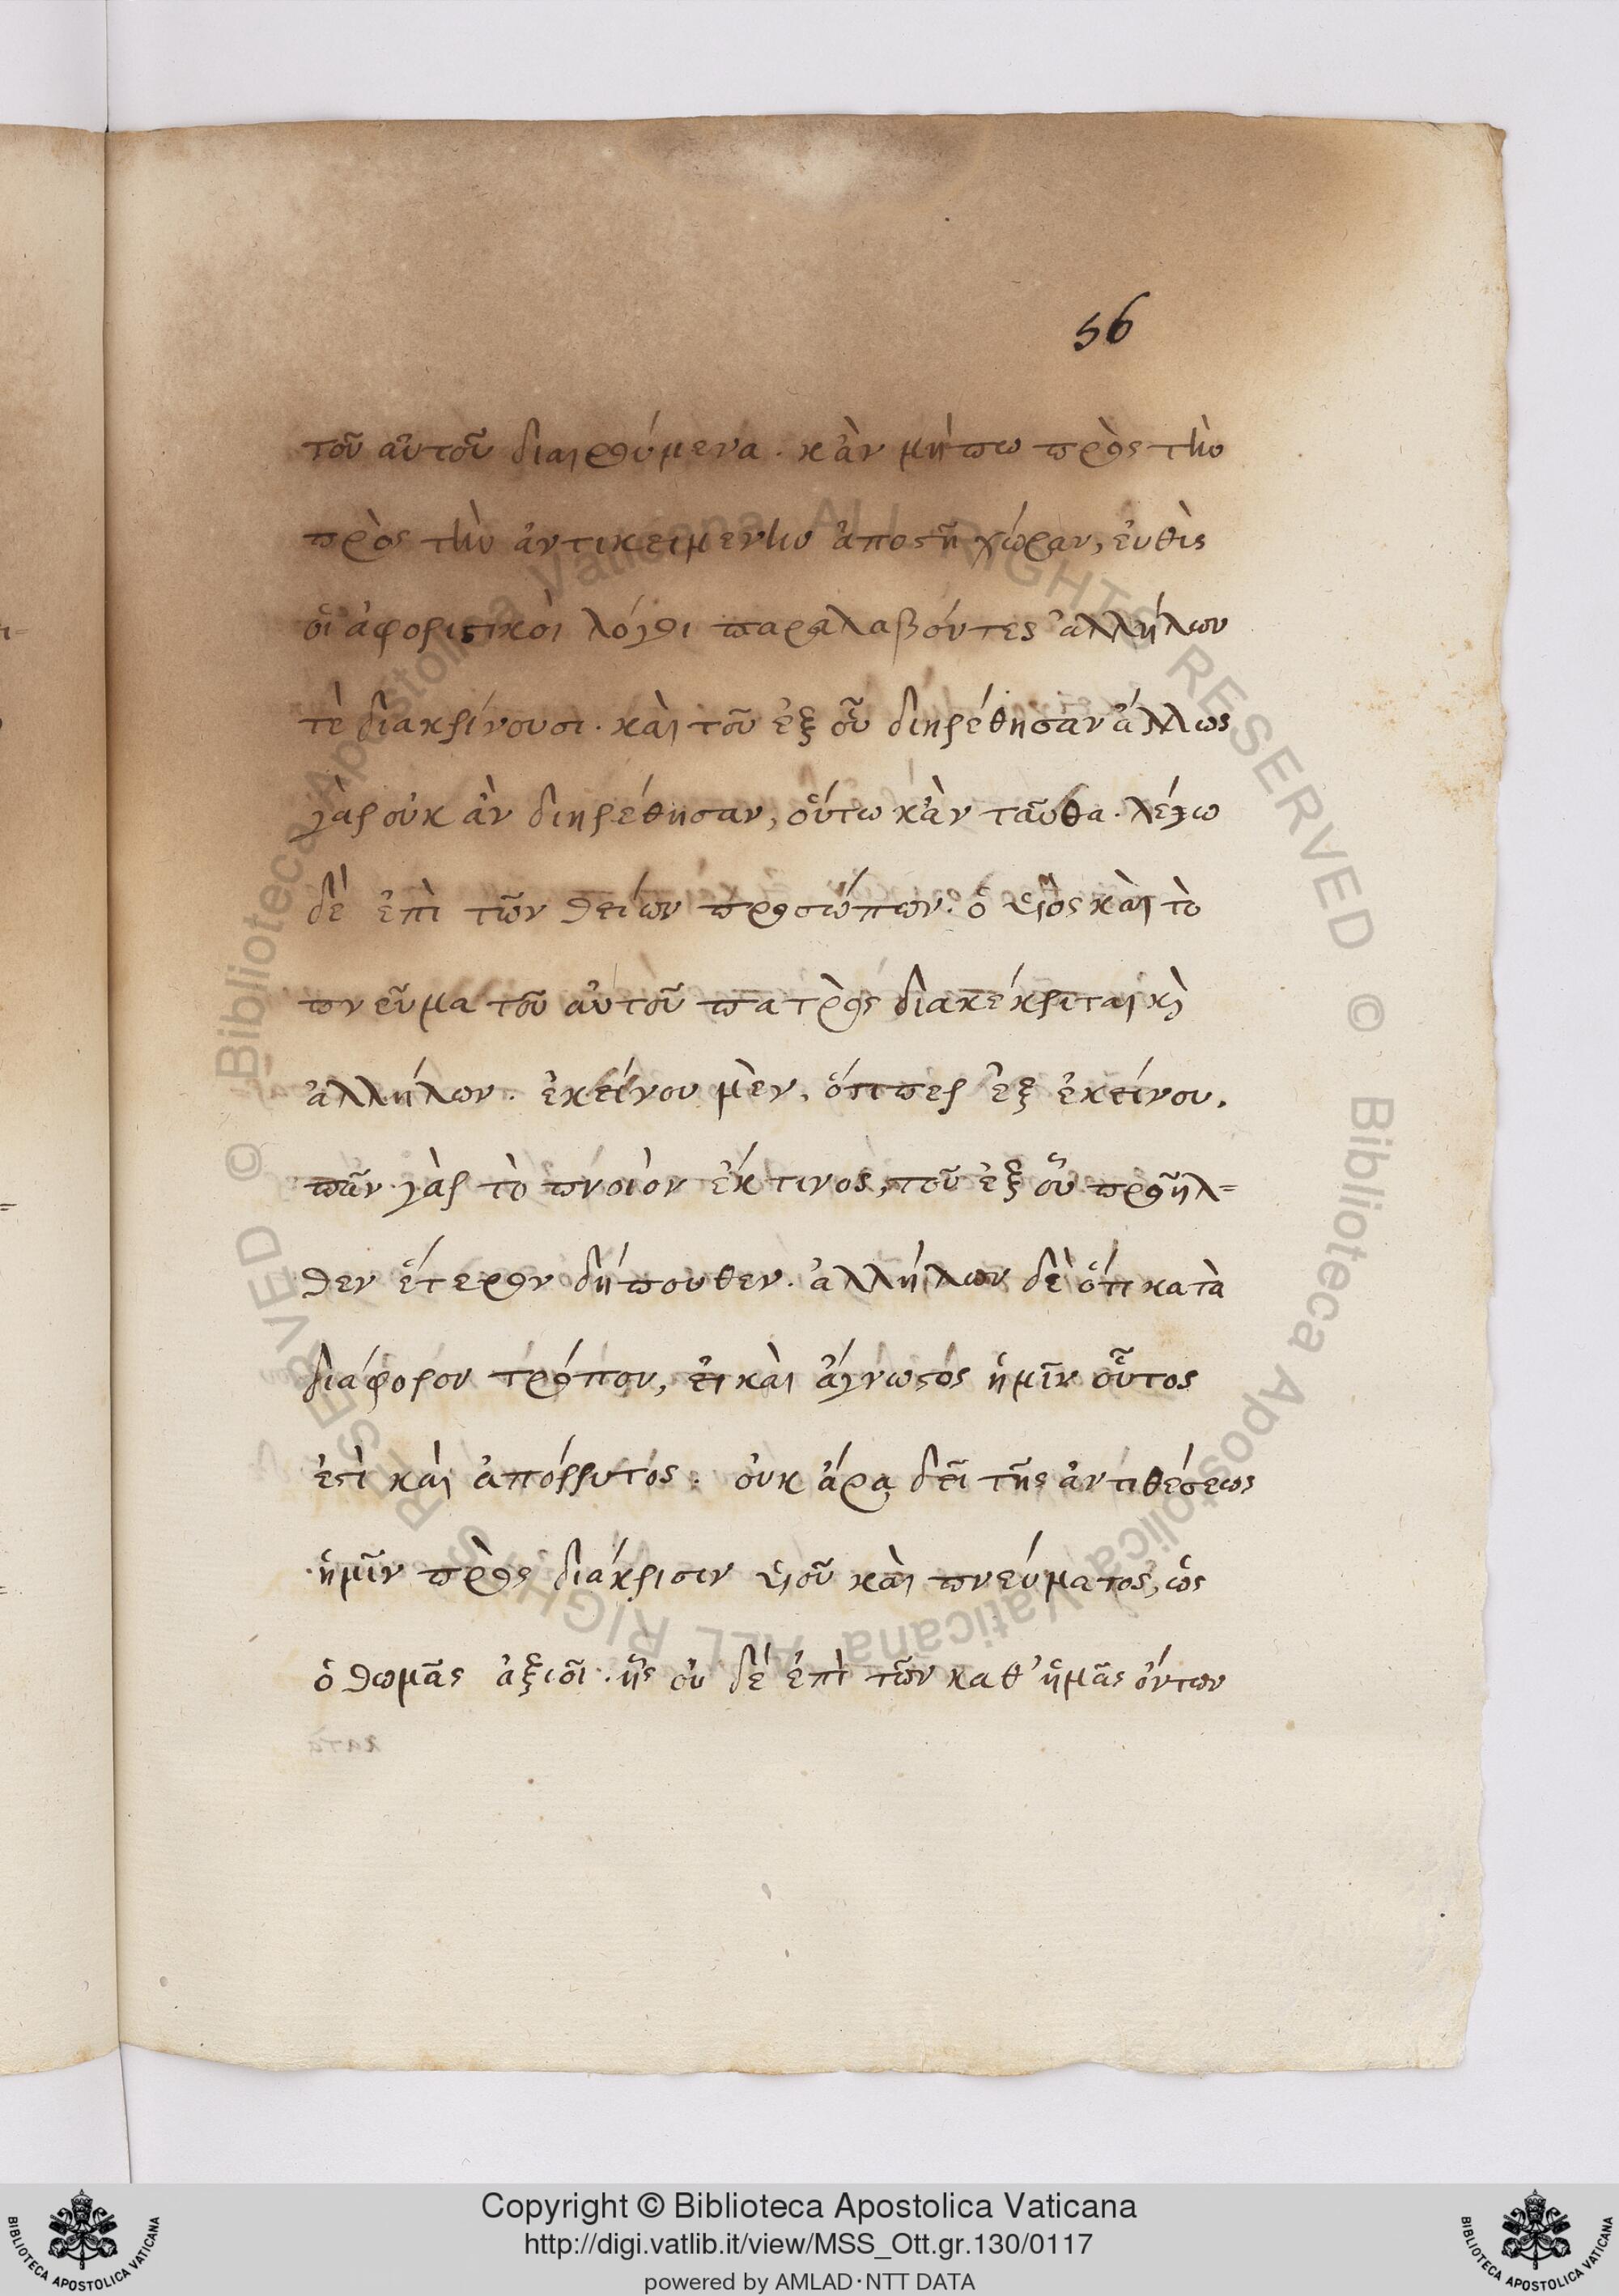 56
τοῦ αὐτοῦ διαιρούμενα. κἂν μήπω πρὸς τὴν
πρὸς τὴν ἀντικειμενην ἀποστῇ χώραν, ἐυθὶς
οἱ ἀφοριστικοὶ λόγοι παραλαβόντες ἀλλήλων
τὲ διακρίνουσι. καὶ τοῦ ἐξ οὗ διηρέθησαν ἄλλως
γὰρ οὐκ ἂν διηρέθησαν, οὕτω κἀν ταῦθα. λέγω
δὲ ἐπὶ τῶν θείων προσώπων. ὁ υἱὸς καὶ τὸ
πνεῦμα τοῦ αὐτοῦ πατρὸς διακέκριται κὶ
ἀλλήλων. ἐκείνου μὲν, ὅτιπερ ἐξ ἐκείνου.
πᾶν γὰρ τὸ πνοιὸν ἐκ τινος, τοῦ ἐξ οὗ προῆλ=
θεν ἕτερον δήπουθεν. ἀλλήλων δὲ ὅτι κατὰ
διάφορον τρόπον, εἰ καὶ ἄγνωστος ἡμῖν οὗτος
ἐστὶ καὶ ἀπόρρυτος: οὐκ ἄρα δεῖ τῆς ἀντιθέσεως
ἡμῖν πρὸς διάκρισιν υἱοῦ καὶ πνεύματος, ὡς
ὁ θωμᾶς ἀξιοῖ. ἧς οὐ δὲ ἐπὶ τῶν καθ᾽ ἡμᾶς ὄντων
© Biblioteca Apostolica Vaticana ALL RIGHTS RESERVED
© Biblioteca Apostolica Vaticana ALL RIGHTS RESERVED
BIBLIOTECA APOSTOLICA VATICANA
Copyright © Biblioteca Apostolica Vaticana
http://digi.vatlib.it/view/MSS_Ott.gr.130/0117
powered by AMLAD·NTT DATA
BIBLIOTECA APOSTOLICA VATICANA